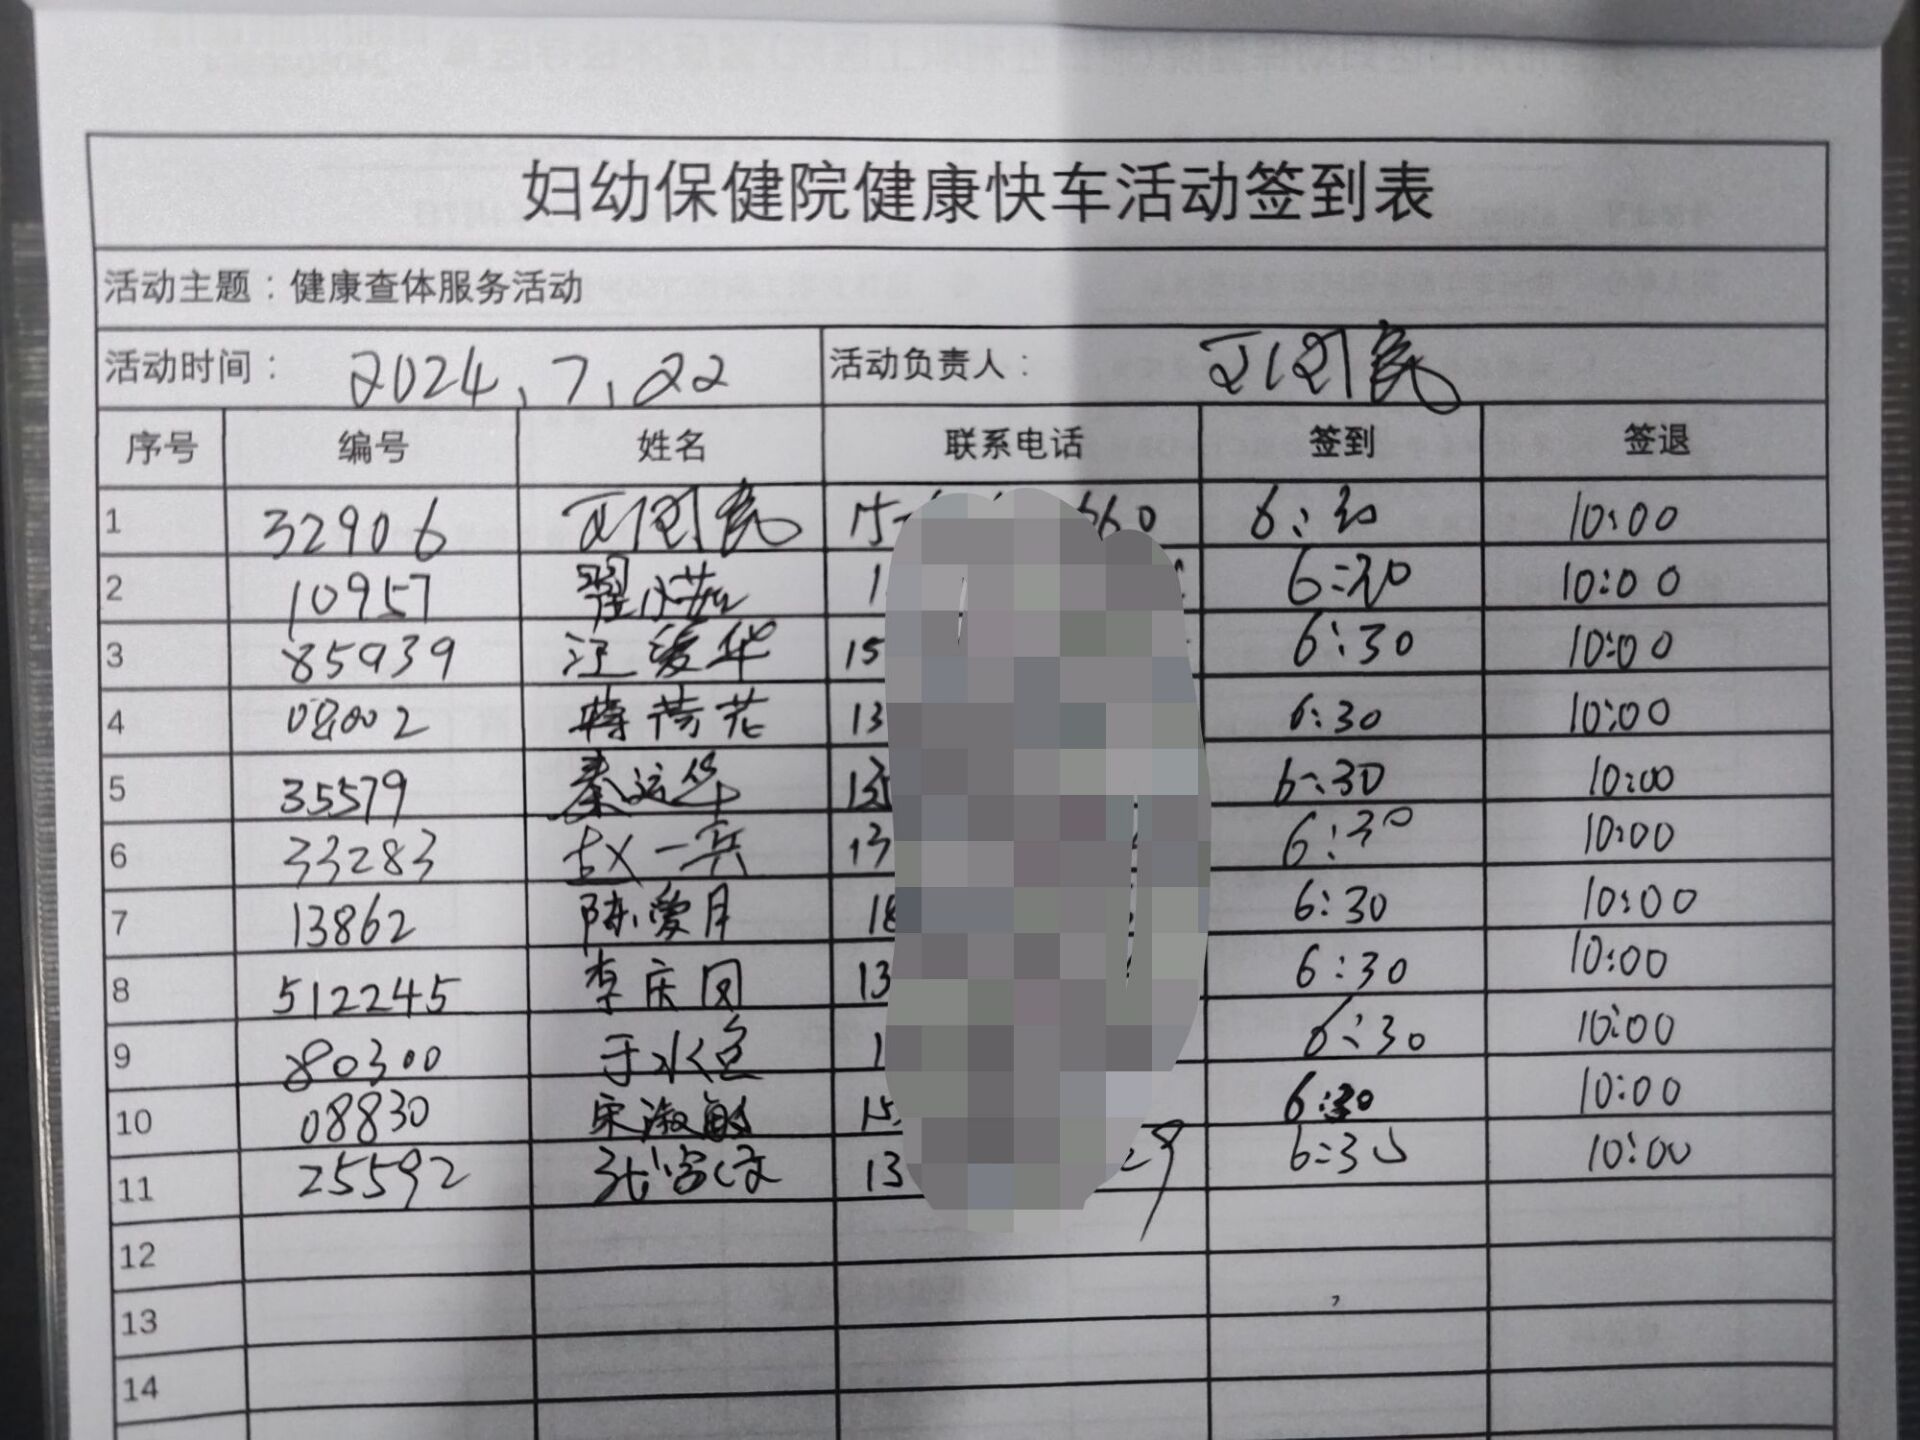 妇幼保健院健康快车活动签到表
活动主题：健康查体服务活动
活动时间： 2024.7.22 活动负责人：
序号 编号 姓名 联系电话 签到 签退
1 32906 6:30 10:00
2 10957 翟小茹 1 6:30 10:00
3 85939 汪爱华 15 6:30 10:00
4 08002 韩荷花 13 6:30 10:00
5 35579 秦运华 13 6:30 10:00
6 33283 赵一兵 13 6:30 10:00
7 13862 陈爱月 18 6:30 10:00
8 512245 李庆 13 6:30 10:00
9 80300 于水 1 6:30 10:00
10 08830 宋淑敏 15 6:30 10:00
11 25592 张 13 29 6:30 10:00
12
13
14